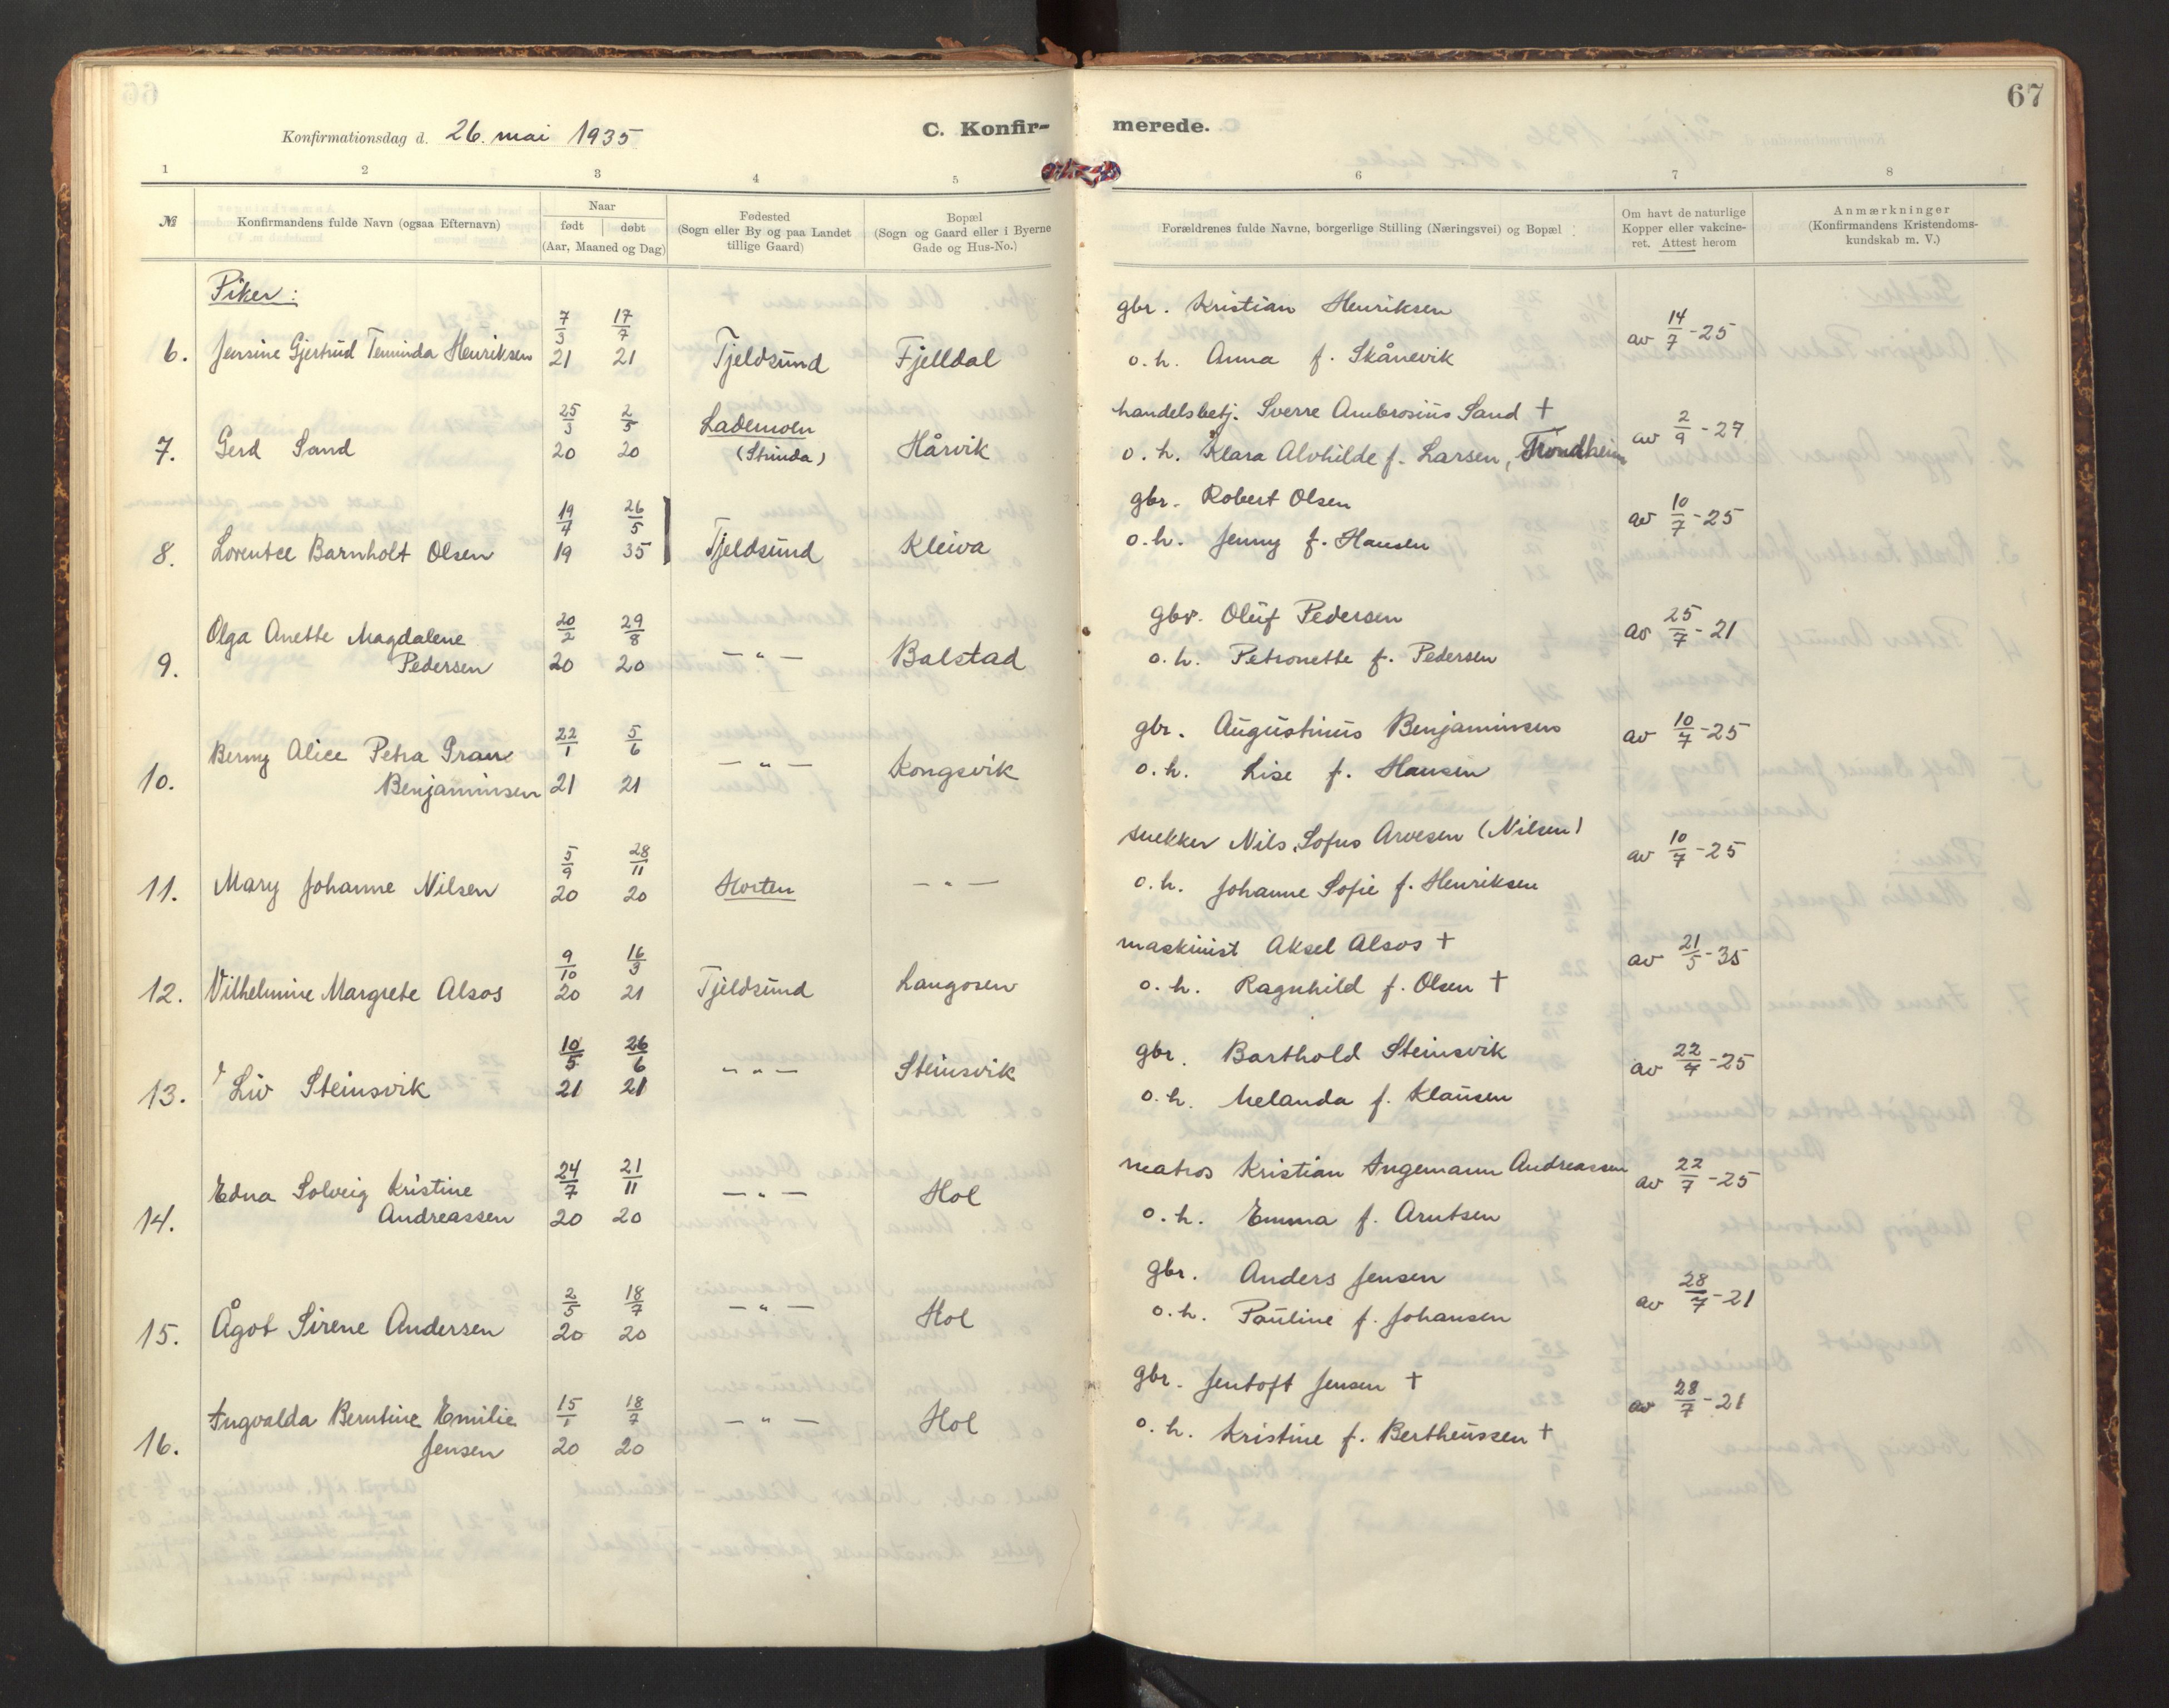 67
Konfirmationsdag d. 26. mai 1935
C. Konfir-
merede.
1 2 3 4 5 6 7 8
№
Konfirmandens fulde Navn (ogsaa Efternavn)
Naar
født døbt
(Aar, Maaned og Dag)
Fødested
(Sogn eller By og paa Landet
tillige Gaard)
Bopæl
(Sogn og Gaard eller i Byerne
Gade og Hus-No.)
Forældrenes fulde Navne, borgerlige Stilling (Næringsvei) og Bopæl
Om havt de naturlige
Kopper eller vakcine-
ret. Attest herom
Anmærkninger
(Konfirmandens Kristendoms-
kundskab m. V.)
Piker:
7/3 17/7 gbr. Kristian Henriksen
6. Jensine Gjertrud Henriksen 21 21 Tjeldsund Fjelldal o.h. Anna f. Skånevik av 14/7-25
25/3 2/5 Lademoen handelsbetj. Sverre Ambrosius Sand +
7. Gerd Sand 20 20 (Strinda) Hårvik o.h. Klara Alvhilde f. Larsen, Trondheim av 2/9-27
19/4 26/5 gbr. Robert Olsen
8. Lorentce Barnholt Olsen 19 35 Tjeldsund Kleiva o.h. Jenny f. Hansen av 10/7-25
Olga Anette Magdalene 20/2 29/8 gbr. Oluf Pedersen
9. Pedersen 20 20 — " — Balstad o.h. Petronette f. Pedersen av 25/7-21
Berny Alice Petra Grav 22/1 5/6 gbr. Augustinus Benjaminsen
10. Benjaminsen 21 21 — " — Kongsvik o.h. Lise f. Hansen av 10/7-25
5/9 28/11 snekker Nils Sofus Arvesen (Nilsen)
11. Mary Johanne Nilsen 20 20 Horten — " — o.h. Johanne Sofie f. Henriksen av 10/7-25
9/10 16/3 maskinist Aksel Alsos +
12. Vilhelmine Margrete Alsos 20 21 Tjeldsund Langosen o.h. Ragnhild f. Olsen + av 21/5-35
10/5 26/6 gbr. Barthold Steinsvik
13. Liv Steinsvik 21 21 — " — Steinsvik o.h. Melanda f. Klausen av 22/7-25
Edna Solveig Kristine 24/7 21/11 matros Kristian Ingemann Andreassen
14. Andreassen 20 20 — " — Hol o.h. Emma f. Arntsen av 22/7-25
2/5 18/7 gbr. Anders Jensen
15. Ågot Sirene Andersen 20 20 — " — Hol o.h. Pauline f. Johansen av 28/7-21
Ingvalda Berntine Emilie 15/1 18/7 gbr. Jentoft Jensen +
16. Jensen 20 20 — " — Hol o.h. Kristine f. Bertheussen + av 28/7-21